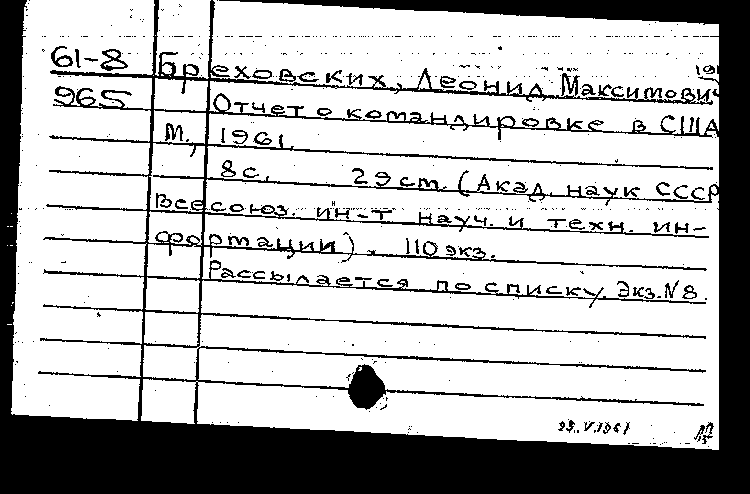 61-8 Бреховских, Леонид Максимович
965 Отчет о командировке в США
М., 1961.
8 с. 29 ст. (Акад. наук СССР
Всесоюз. ин-т науч. и техн. ин-
фортации). 110 экз.
Рассылается по списку. Экз. N 8.